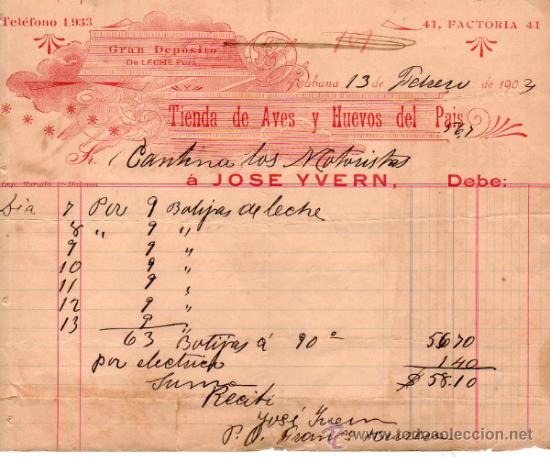 Teléfono 1.933
41, FACTORIA 41
Gran Depósito
De LECHE Pura
Habana 13 de Febrero de 1903
Tienda de Aves y Huevos del Pais
Sr. Cantina los Motoristas
á JOSE YVERN, Debe:
Dia 7 Por 9 Botijas de leche
8 " 9 "
9 9 "
10 9 "
11 9 "
12 9 "
13 9 "
63 Botijas á 90 5670
por electrica 140
Suma $58.10
Recibi
José Ivern
P. O. Fran
todocoleccion.net